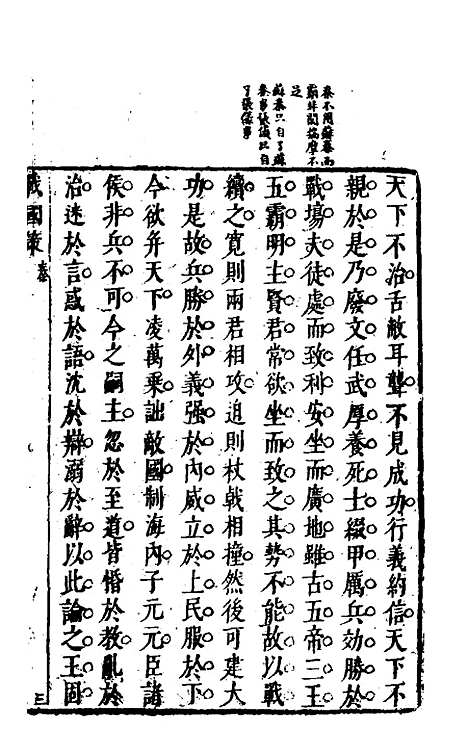 秦不用蘇秦而
霸非關揣摩不
足
蘇秦只自了蘇
秦事張儀只自
了張儀事
天下不治舌敝耳聾不見成功行義約信天下不
親於是乃廢文任武厚養死士綴甲厲兵効勝於
戰塲夫徒處而致利安坐而廣地雖古五帝三王
五霸明主賢君常欲坐而致之其勢不能故以戰
續之寬則兩君相攻迫則杖戟相撞然後可建大
功是故兵勝於外義強於內威立於上民服於下
今欲并天下凌萬乘詘敵國制海內子元元臣諸
侯非兵不可今之嗣主忽於至道皆惛於教亂於
治迷於言惑於語沈於辯溺於辭以此論之王固
戰國策 秦 三